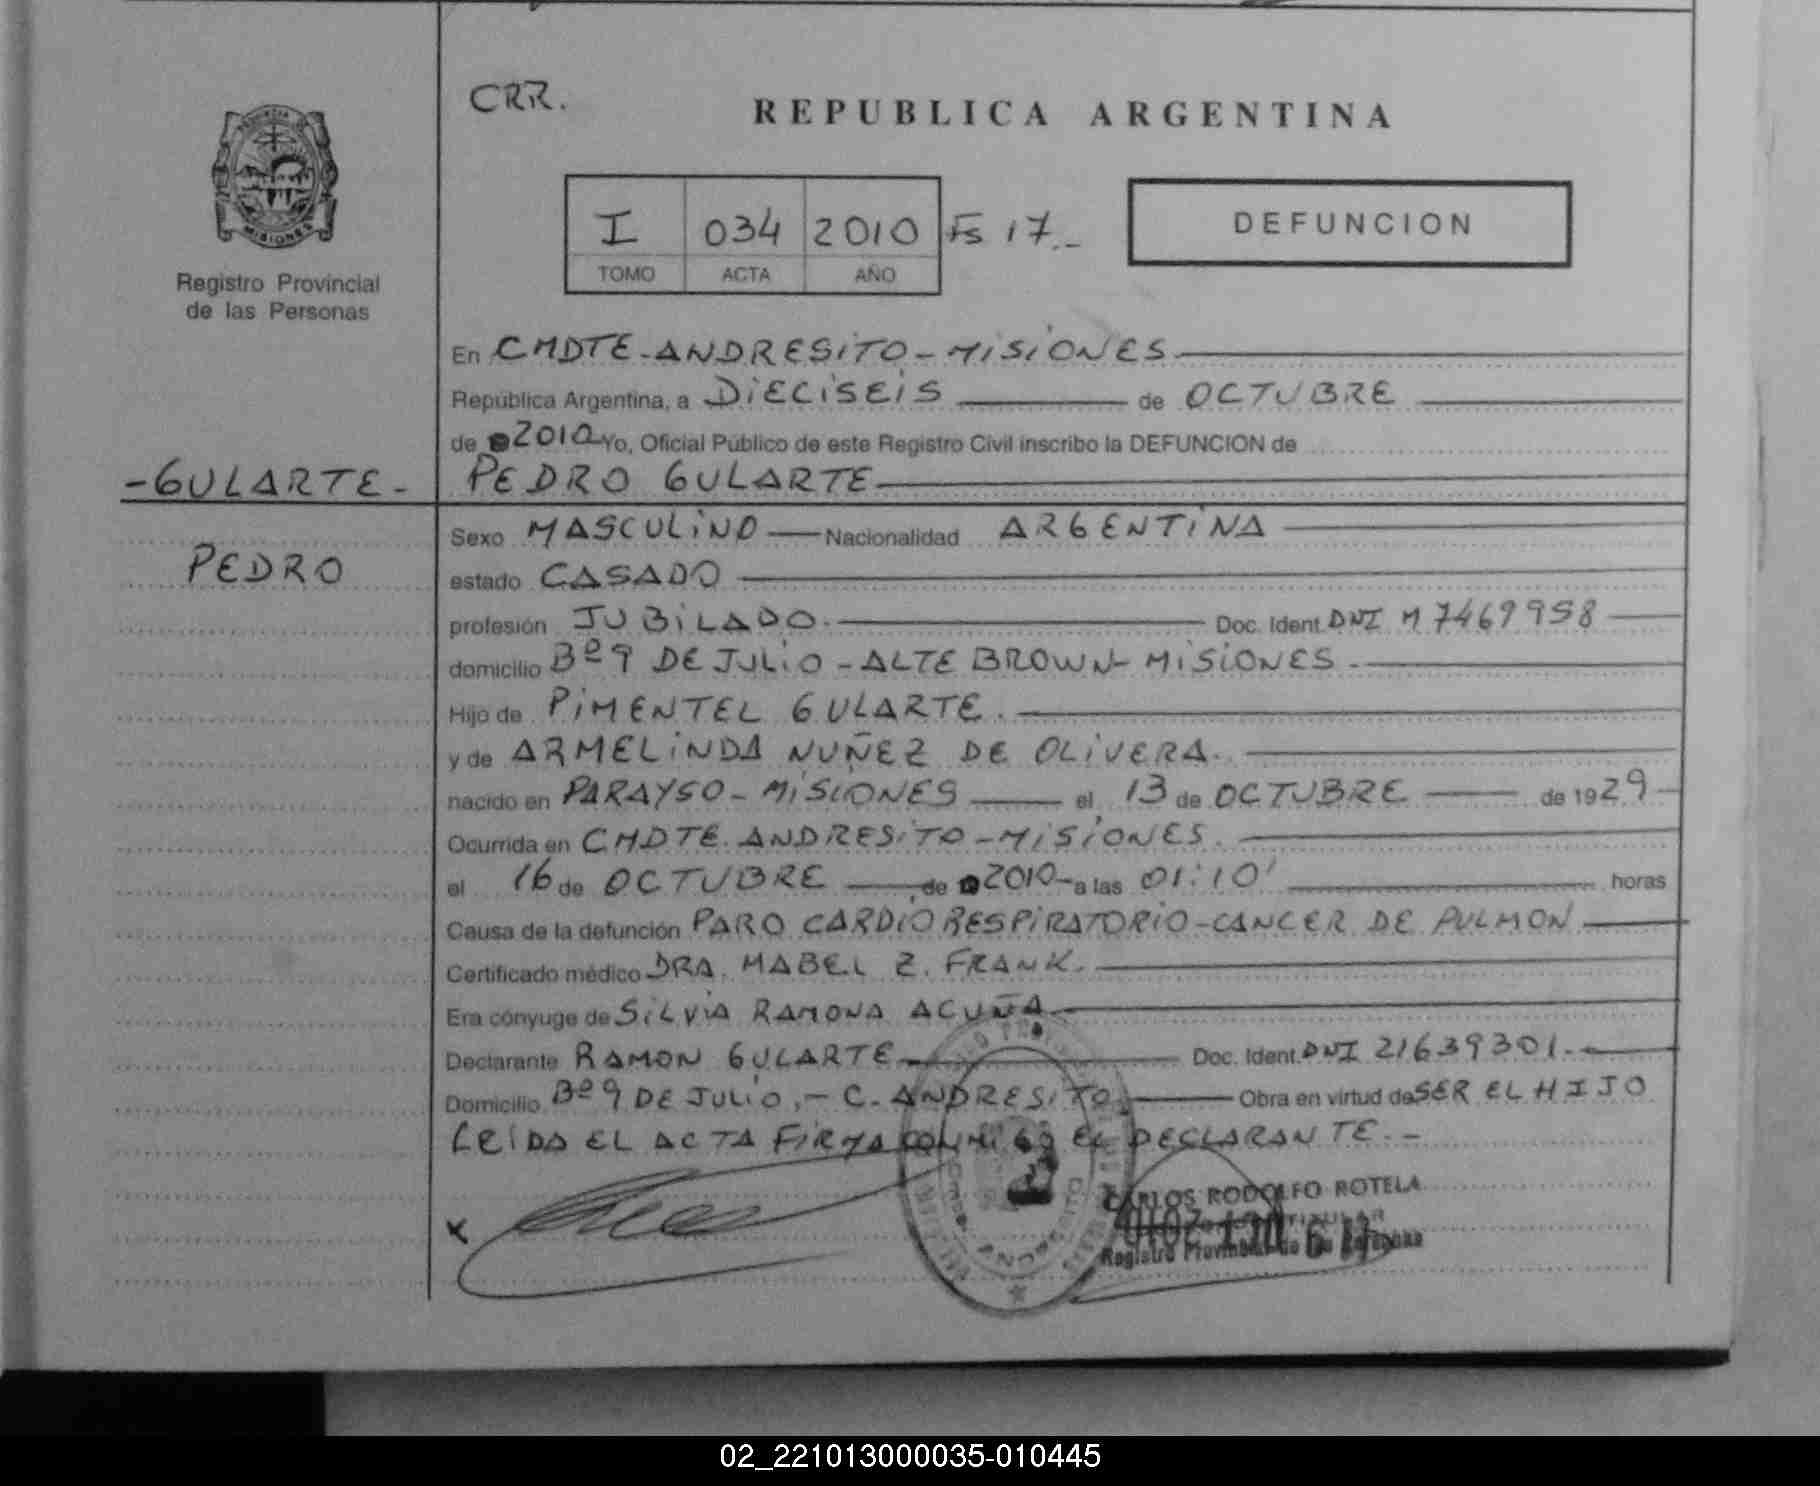 CRR.
REPUBLICA ARGENTINA
PROVINCIA
MISIONES
Registro Provincial
de las Personas
I 034 2010 Fs 17.-
TOMO ACTA AÑO
DEFUNCION
En CMDTE-ANDRESITO-MISIONES
República Argentina, a DIECISEIS de OCTUBRE
de 2010 Yo, Oficial Público de este Registro Civil inscribo la DEFUNCION de
-GULARTE- PEDRO GULARTE
Sexo MASCULINO Nacionalidad ARGENTINA
PEDRO
estado CASADO
profesión JUBILADO. Doc. Ident. DNI M 7469958
domicilio Bº 9 DE JULIO - ALTE BROWN - MISIONES.
Hijo de PIMENTEL GULARTE.
y de ARMELINDA NUÑEZ DE OLIVERA.
nacido en PARAYSO - MISIONES el 13 de OCTUBRE de 1929
Ocurrida en CMDTE. ANDRESITO - MISIONES.
el 16 de OCTUBRE de 2010 a las 01:10' horas
Causa de la defunción PARO CARDIORESPIRATORIO - CANCER DE PULMON
Certificado médico DRA. MABEL Z. FRANK.
Era cónyuge de SILVIA RAMONA ACUÑA
Declarante RAMON GULARTE Doc. Ident. DNI 21639301.
Domicilio Bº 9 DE JULIO.- C. ANDRESITO Obra en virtud de SER EL HIJO
LEIDA EL ACTA FIRMA CONMIGO EL DECLARANTE.-
x
CARLOS RODOLFO ROTELA
TITULAR
Registro Provincial de las Personas
02_221013000035-010445